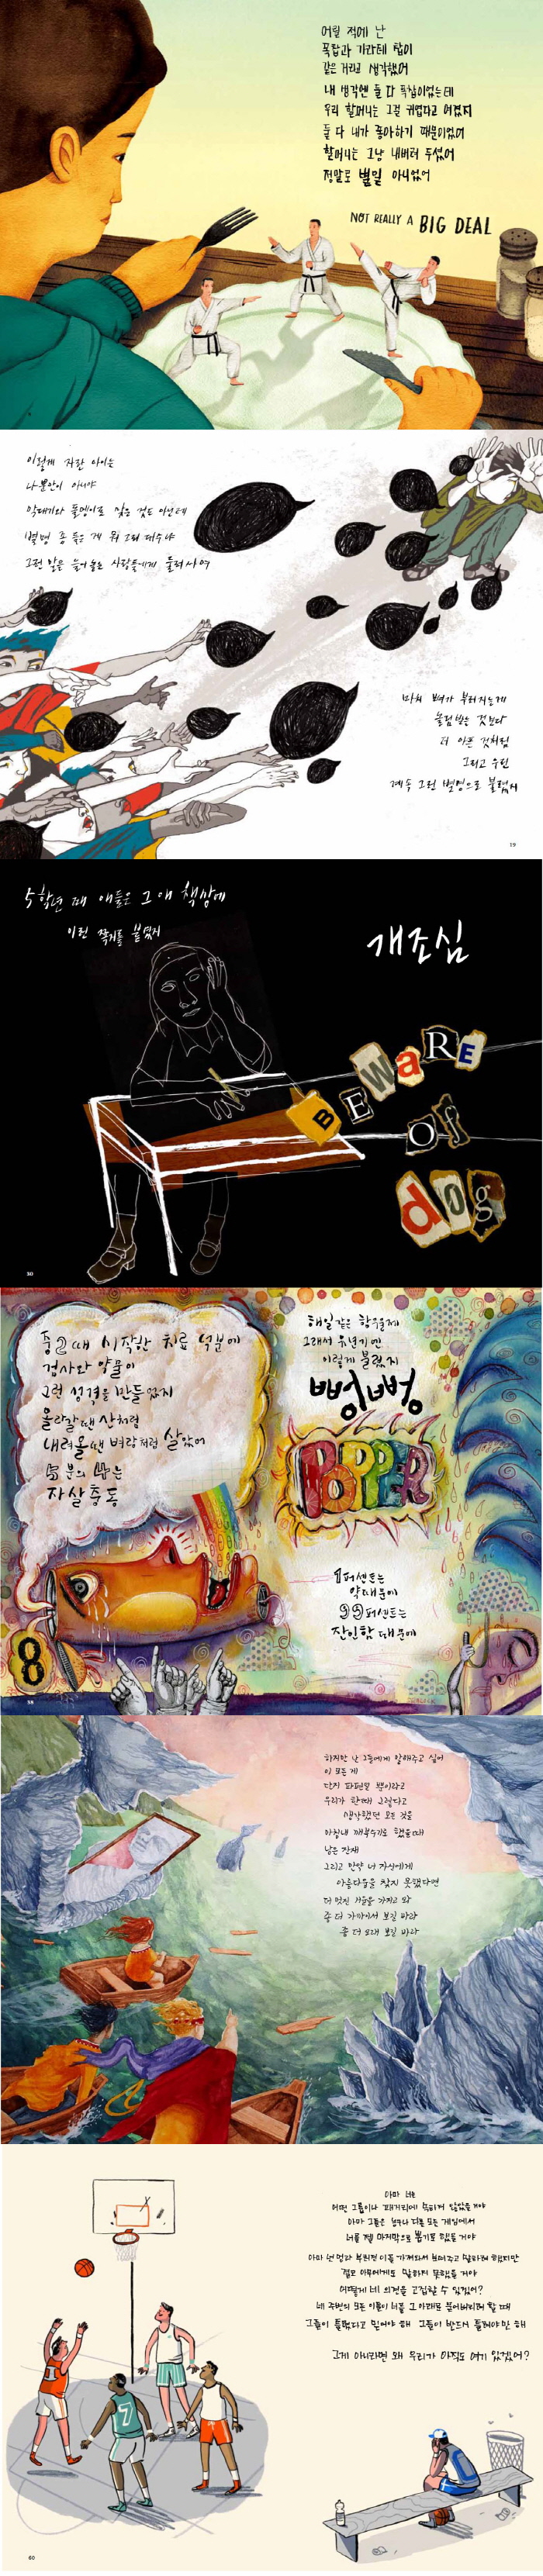 어릴 적에 난
폭찹과 가라테 찹이
같은 거라고 생각했어
내 생각엔 둘 다 폭찹이었는데
우리 할머니는 그걸 귀엽다고 여겼지
둘 다 내가 좋아하기 때문이었어
할머니는 그냥 내버려 두셨어
정말로 별일 아니었어
NOT REALLY A BIG DEAL
이렇게 자란 아이는
나뿐만이 아니야
막대기와 돌멩이로 맞은 것도 아닌데
별명 좀 들은 게 뭐 그리 대수냐
그런 말은 늘어놓은 사람들에게 둘러싸여
마치 뼈가 부러지는 게
놀림받는 것보다
더 아픈 것처럼
그리고 우린
계속 그런 별명으로 불렸지
19
5학년 때 애들은 그 애 책상에
이런 쪽지를 붙였지
개조심
BEWARE
OF
dog
30
중2 때 시작한 치료 덕분에
검사와 약물이
그런 성격을 만들었지
올라갈 땐 산처럼
내려올 땐 벼랑처럼 살았어
5분의 4는
자살충동
해일 같은 항우울제
그래서 유년기엔
이렇게 불렸지
뻥뻥
POPPER
1퍼센트는
약 때문에
99퍼센트는
잔인함 때문에
8
38
하지만 난 그들에게 말해주고 싶어
이 모든 게
단지 파편일 뿐이라고
우리가 한때 그렇다고
생각했던 모든 것을
마침내 깨부수기로 했을 때
남은 잔재
그리고 만약 너 자신에게
아름다움을 찾지 못했다면
더 멋진 거울을 가지고 와
좀 더 가까이서 보길 바라
좀 더 오래 보길 바라
아마 너는
어떤 그룹이나 패거리에 속하지 않았을 거야
아마 그들은 농구나 다른 모든 게임에서
너를 맨 마지막으로 뽑기로 했을 거야
아마 넌 멍과 부러진 이를 가져와서 보여주고 말하려 했지만
결코 아무에게도 말하지 못했을 거야
어떻게 네 의견을 고집할 수 있겠어?
네 주변의 모든 이들이 너를 그 아래로 묻어버리려 할 때
그들이 틀렸다고 믿어야 해 그들이 반드시 틀려야만 해
그게 아니라면 왜 우리가 아직도 여기 있겠어?
7
60